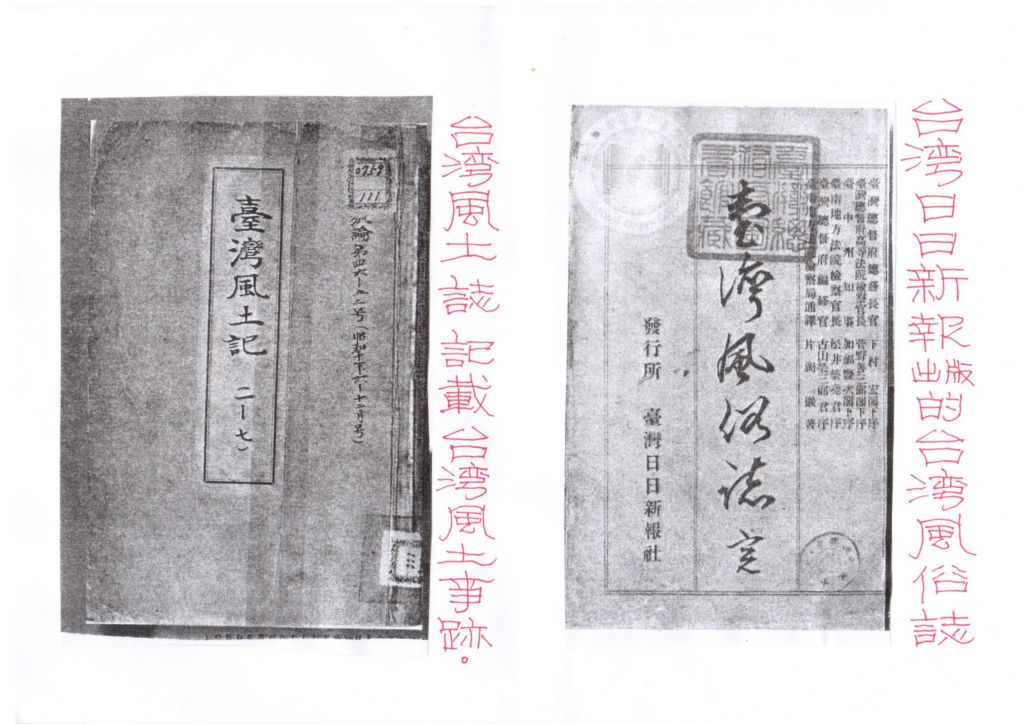 台湾日日新報出版的台湾風俗誌
臺灣總督府總務長官 下村 宏閣下序
臺灣總督府高等法院檢察官長 菅野善三郎閣下序
臺中州知事 加福豐次閣下序
臺南地方法院檢察官長 松井榮堯君序
臺灣總督府編修官 古山榮三郎君序
片岡 巖 著
臺灣風俗誌 完
發行所 臺灣日日新報社
台湾風土誌 記載台湾風土事跡。
0759
111
臺灣風土記
二—七